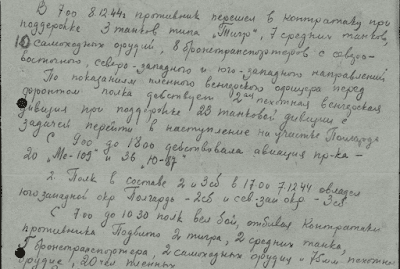 В 7.00 8.12.44г противник перешел в контратаку при
поддержке 3 танков типа „Тигр", 7 средних танков,
10 самоходных орудий, 8 бронетранспортеров с северо-
восточного, северо-западного и юго-западного направлений
По показаниям пленного венгерского офицера перед
фронтом полка действует 2 пехотная венгерская
дивизия при поддержке 23 танковой дивизии с
задачей перейти в наступление на участке Полгарда
С 9.00 до 18.00 действовала авиация пр-ка –
20 „Ме-109" и 36 „Ю-87"
2. Полк в составе 2 и 3сб в 17.00 7.12.44 овладел
юго западной окр Полгарда - 2сб и сев-зап окр. - 3сб
С 7.00 до 10.30 полк вел бой, отбивая контратаки
противника Подбито 2 тигра, 2 средних танка,
5 бронетранспортера, 2 самоходных орудия и 75мм пехотных
орудие, 20 чел пленных